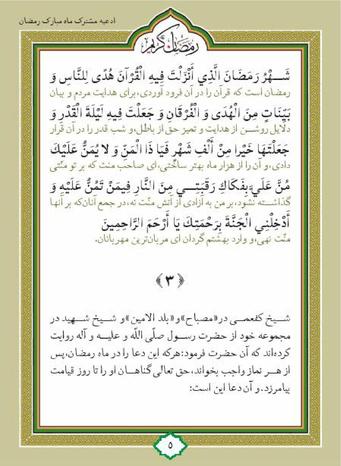 ادعیه مشترک ماه مبارک رمضان
رمضان کریم
شَهْرُ رَمَضَانَ الَّذِي أَنْزَلْتَ فِيهِ الْقُرْآنَ هُدًى لِلنَّاسِ وَ
رمضان است که قرآن را در آن فرود آوردی، برای هدایت مردم و بیان
بَيِّنَاتٍ مِنَ الْهُدَى وَ الْفُرْقَانِ وَ جَعَلْتَ فِيهِ لَيْلَةَ الْقَدْرِ وَ
دلایل روشن از هدایت و تمییز حق از باطل، و شب قدر را در آن قرار
جَعَلْتَهَا خَيْرا مِنْ أَلْفِ شَهْرٍ فَيَا ذَا الْمَنِّ وَ لا يُمَنُّ عَلَيْكَ
دادی، و آن را از هزار ماه بهتر ساختی، ای صاحب منت که بر تو منّتی
مُنَّ عَلَيَّ بِفَكَاكِ رَقَبَتِي مِنَ النَّارِ فِيمَنْ تَمُنُّ عَلَيْهِ وَ
گذاشته نشود، بر من به آزادی از آتش منّت نه، در جمع آنان‌که بر آنها
أَدْخِلْنِي الْجَنَّةَ بِرَحْمَتِكَ يَا أَرْحَمَ الرَّاحِمِينَ
منّت نهی، و وارد بهشتم گردان ای مهربان‌ترین مهربانان.
﴿۳﴾
شیخ کفعمی در «مصباح» و «بلد الامین» و شیخ شهید در
مجموعه خود از حضرت رسول صلّی اللّه و علیه و آله روایت
کرده‌اند که آن حضرت فرمود: هرکه این دعا را در ماه رمضان، پس
از هر نماز واجب بخواند، حق تعالی گناهان او را تا روز قیامت
بیامرزد. و آن دعا این است:
۵